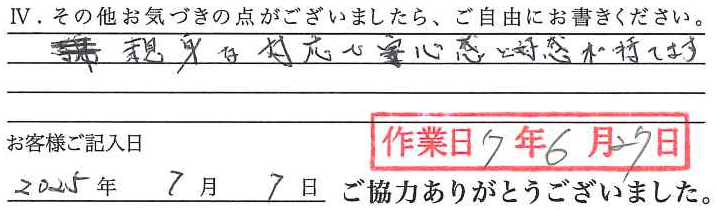 Ⅳ．その他お気づきの点がございましたら、ご自由にお書きください。
親身な対応で安心感と好感が持てます
お客様ご記入日
作業日 7年6月27日
2025年 7月 7日 ご協力ありがとうございました。